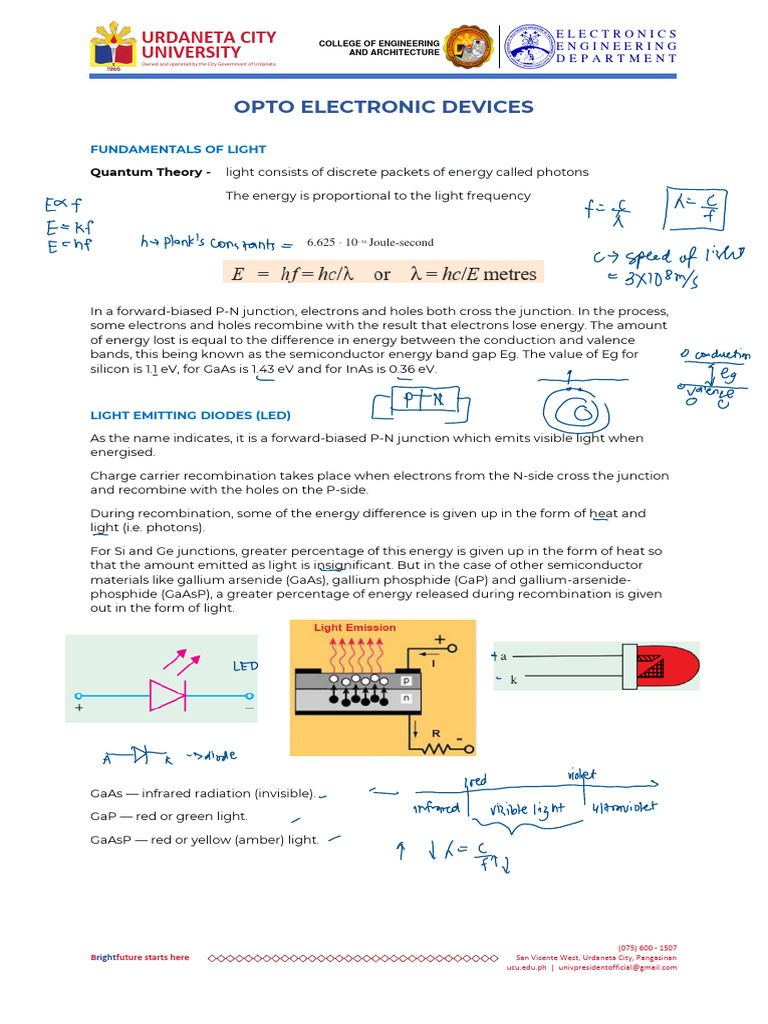 URDANETA CITY
UNIVERSITY
Owned and operated by the City Government of Urdaneta
1966
COLLEGE OF ENGINEERING
AND ARCHITECTURE
ELECTRONICS
ENGINEERING
DEPARTMENT
OPTO ELECTRONIC DEVICES
FUNDAMENTALS OF LIGHT
Quantum Theory - light consists of discrete packets of energy called photons
The energy is proportional to the light frequency
E∝f
E=kf
E=hf
f= c/λ
λ= c/f
h→ plank's constants = 6.625 · 10⁻³⁴ Joule-second
c→ speed of light
= 3X10⁸m/s
E = hf = hc/λ or λ = hc/E metres
In a forward-biased P-N junction, electrons and holes both cross the junction. In the process,
some electrons and holes recombine with the result that electrons lose energy. The amount
of energy lost is equal to the difference in energy between the conduction and valence
bands, this being known as the semiconductor energy band gap Eg. The value of Eg for
silicon is 1.1 eV, for GaAs is 1.43 eV and for InAs is 0.36 eV.
conduction
eg
valence
P N
LIGHT EMITTING DIODES (LED)
As the name indicates, it is a forward-biased P-N junction which emits visible light when
energised.
Charge carrier recombination takes place when electrons from the N-side cross the junction
and recombine with the holes on the P-side.
During recombination, some of the energy difference is given up in the form of heat and
light (i.e. photons).
For Si and Ge junctions, greater percentage of this energy is given up in the form of heat so
that the amount emitted as light is insignificant. But in the case of other semiconductor
materials like gallium arsenide (GaAs), gallium phosphide (GaP) and gallium-arsenide-
phosphide (GaAsP), a greater percentage of energy released during recombination is given
out in the form of light.
LED
+ −
Light Emission
+
I
P
n
R
-
+ a
- k
A K → diode
GaAs — infrared radiation (invisible).
GaP — red or green light.
GaAsP — red or yellow (amber) light.
red violet
infrared visible light ultraviolet
↑ ↓ λ = c/f ↑↓
Brightfuture starts here
(075) 600 - 1507
San Vicente West, Urdaneta City, Pangasinan
ucu.edu.ph | univpresidentofficial@gmail.com